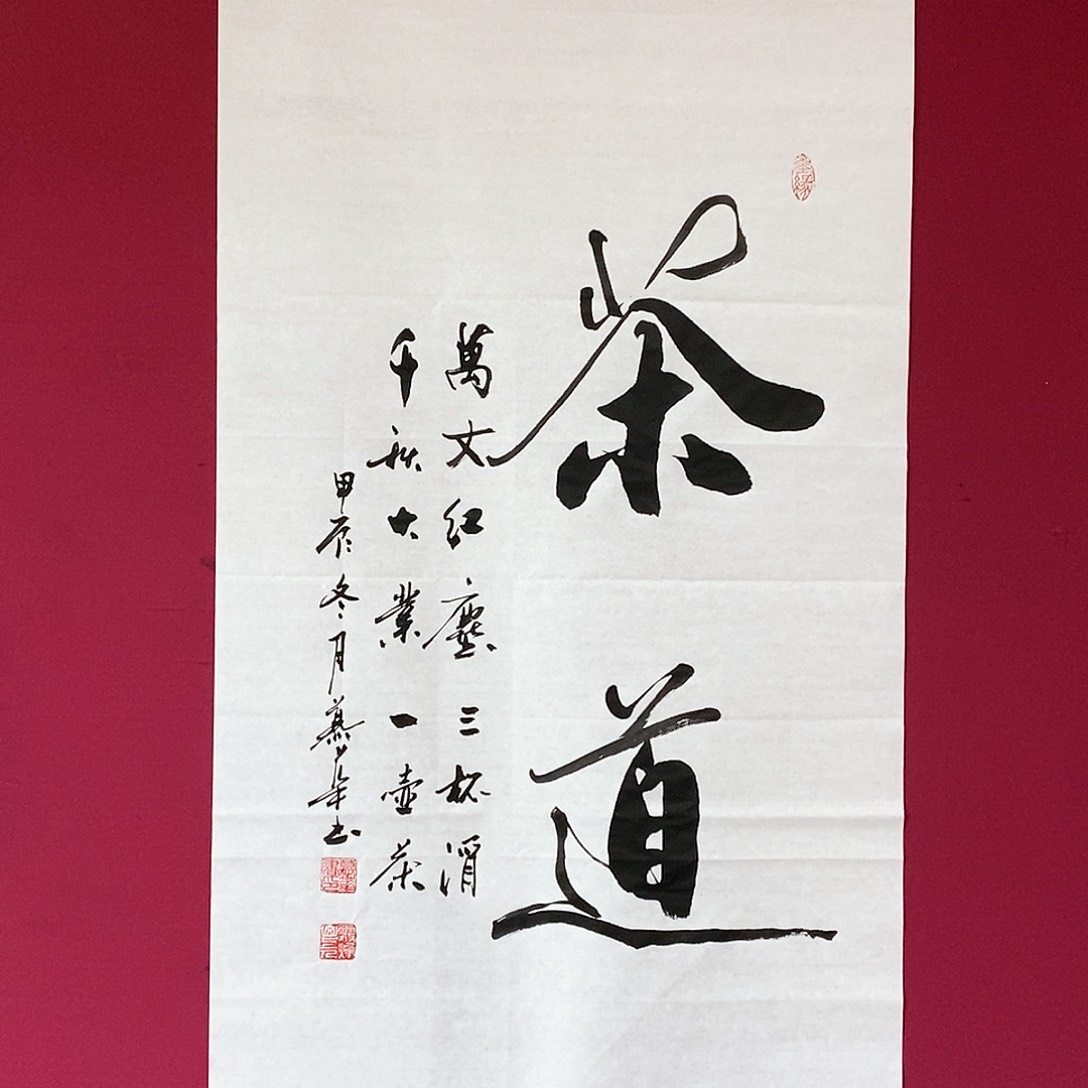 茶道
萬丈紅塵三杯酒
千秋大業一壺茶
甲辰冬月慕華书
墨緣